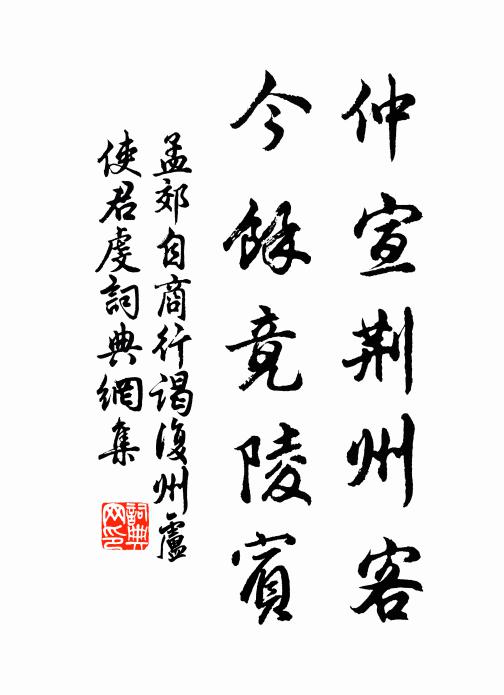 仲宣荆州客
今餘竟陵賓
孟郊自商行謁復州盧
使君虔詞典網集
詞典
网印